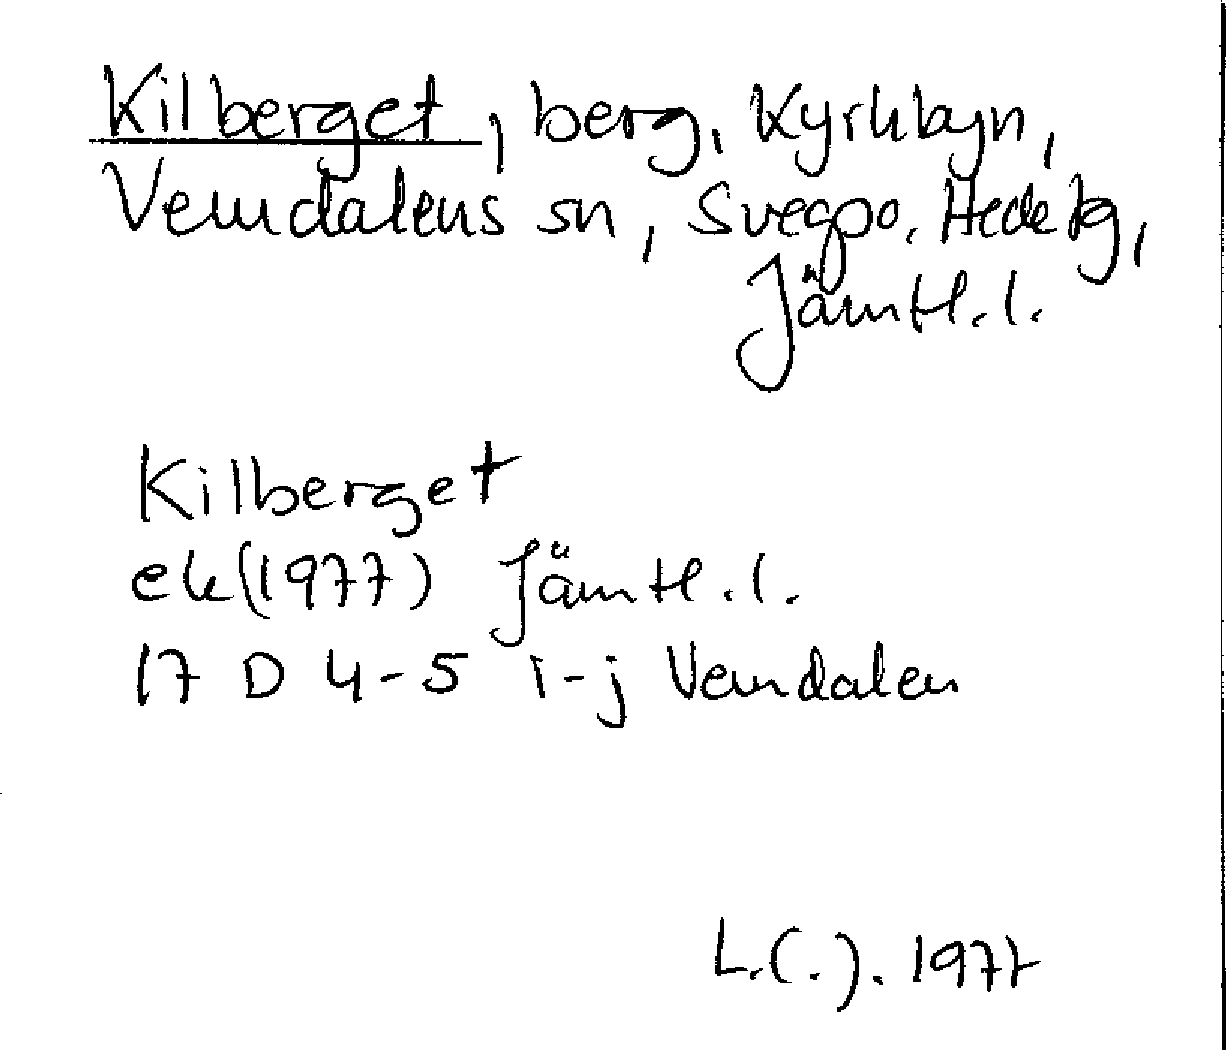 Kilberget, berg, Kyrkbyn,
Vemdalens sn, Svegpo, Hede tg,
Jämtl.l.
Kilberget
ek(1977) Jämtl.l.
17 D 4-5 i-j Vemdalen
L.(.). 1977